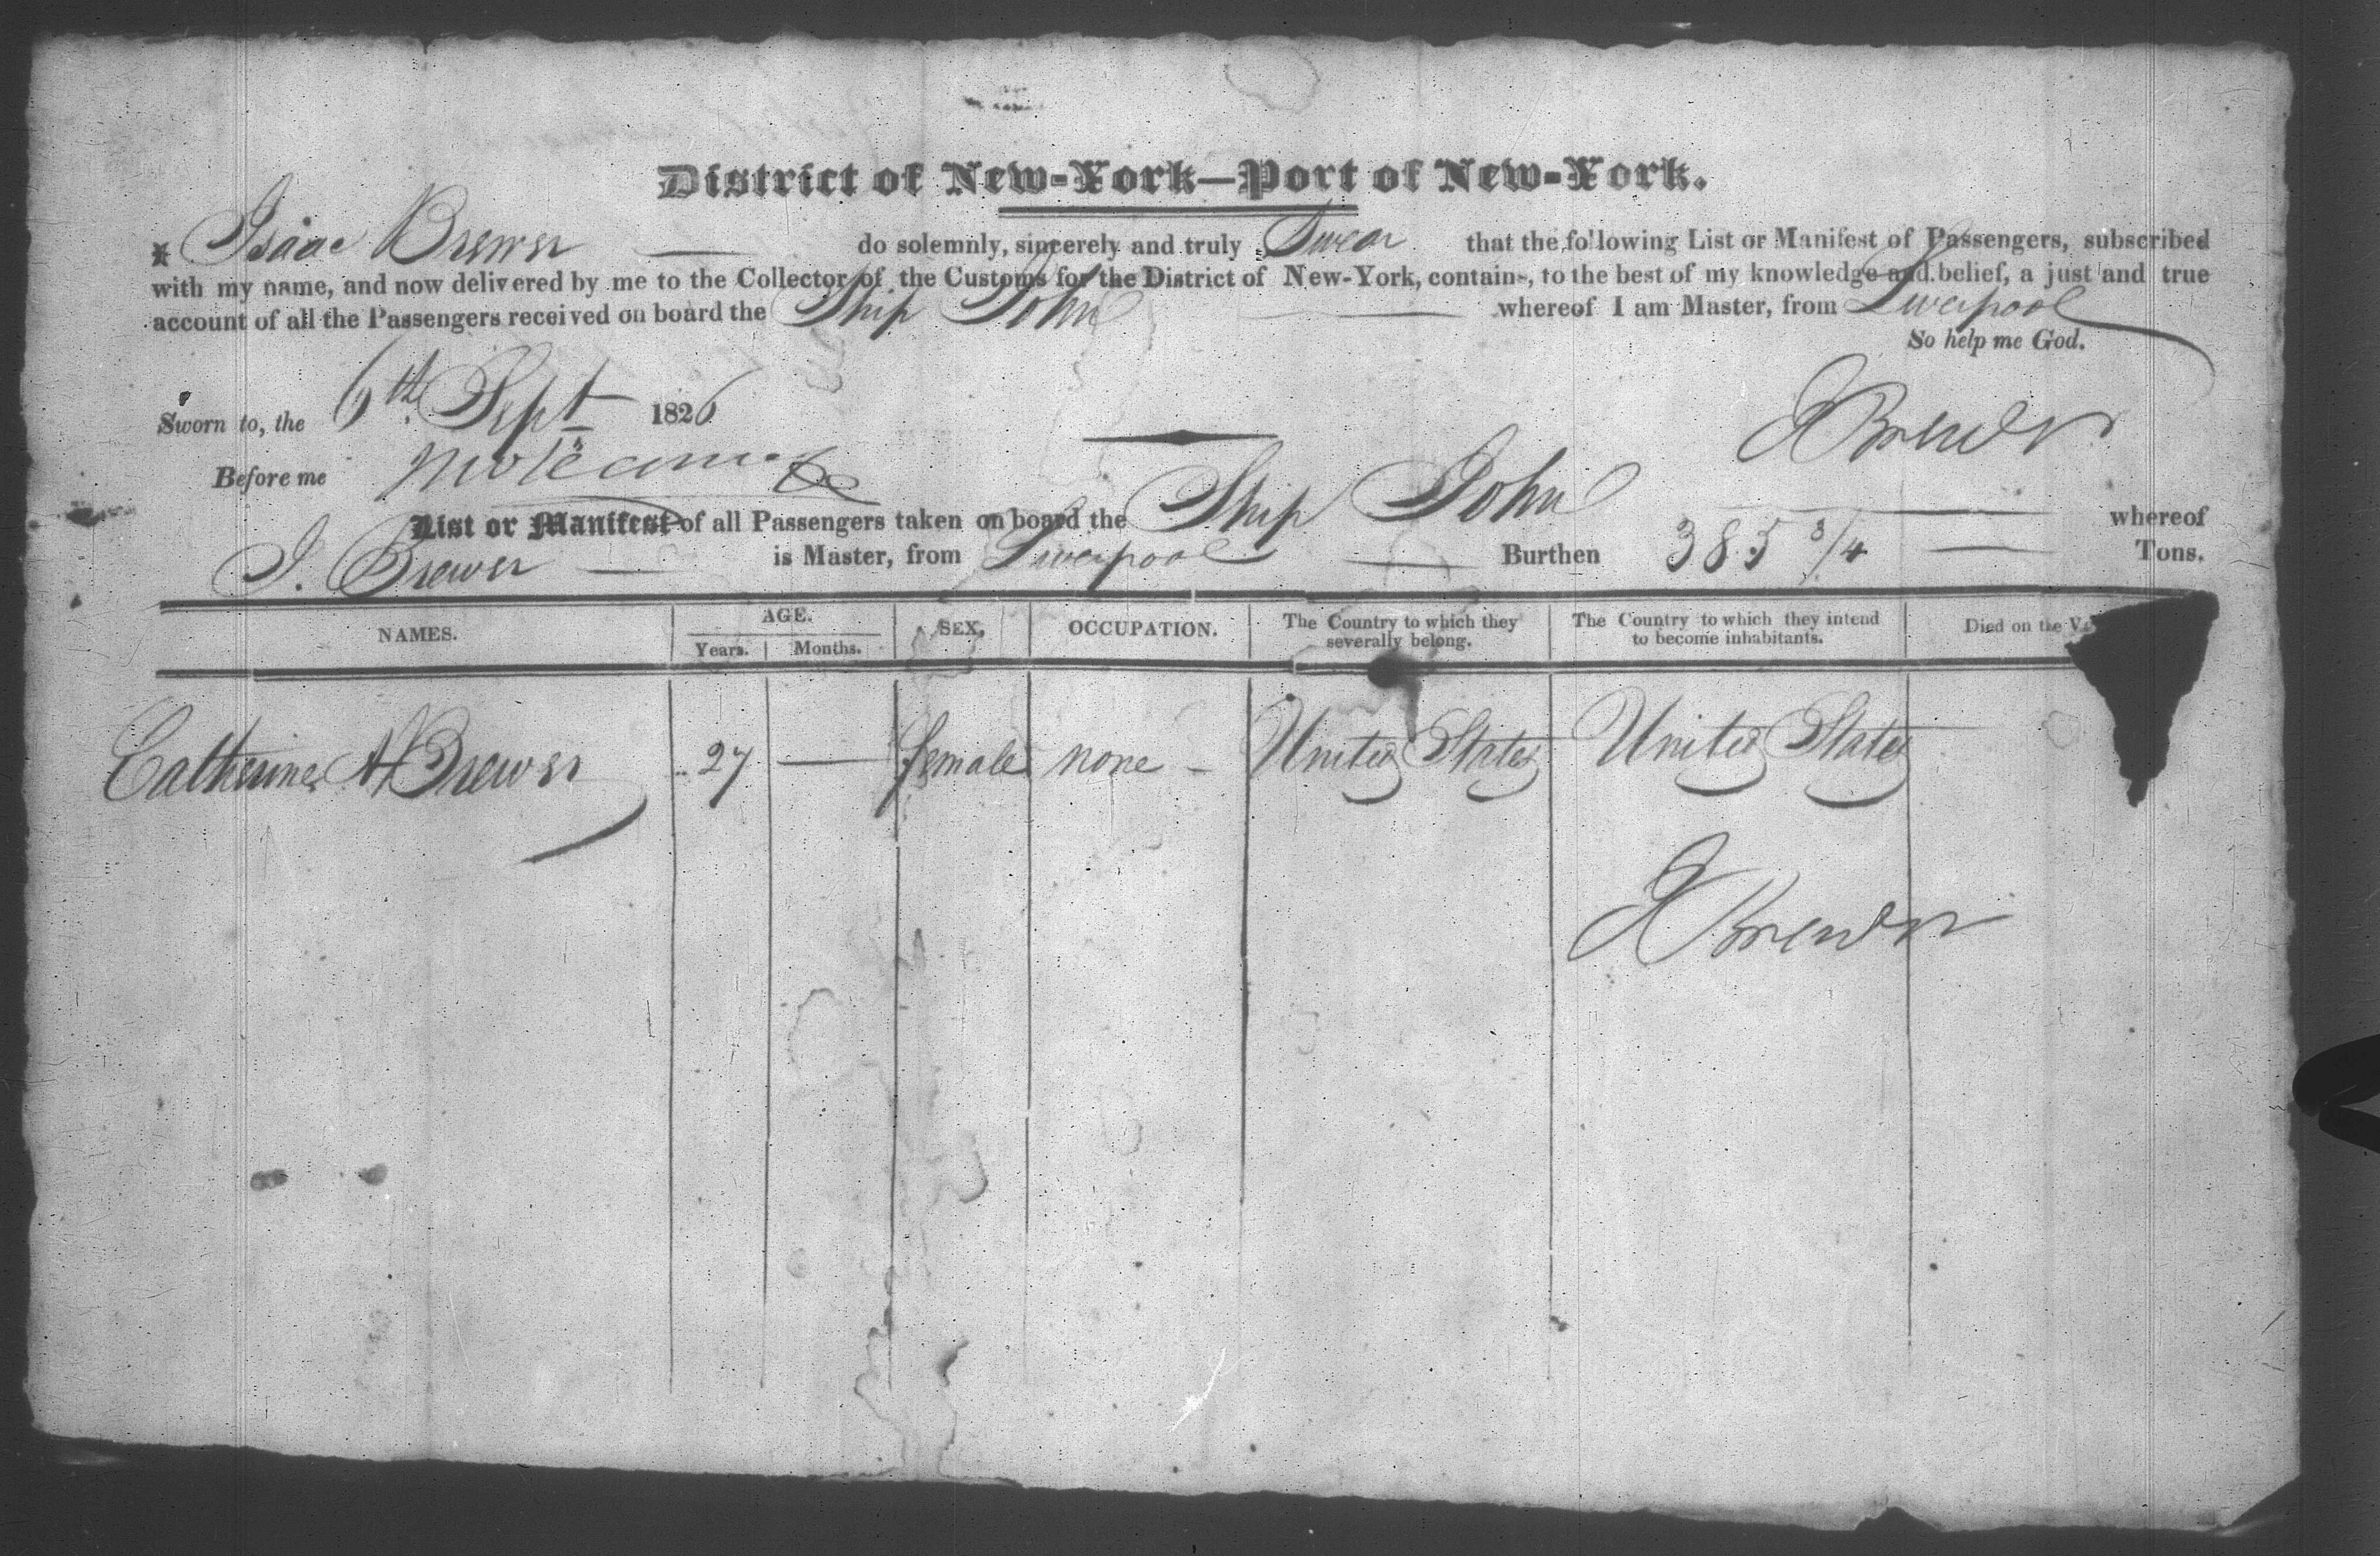 District of New-York—Port of New-York.
I, Isaac Brewer do solemnly, sincerely and truly Swear that the following List or Manifest of Passengers, subscribed
with my name, and now delivered by me to the Collector of the Customs for the District of New-York, contains, to the best of my knowledge and belief, a just and true
account of all the Passengers received on board the Ship John whereof I am Master, from Liverpool
So help me God.
Sworn to, the 6th Sept 1826
I Brewer
Before me
List or Manifest of all Passengers taken on board the Ship John whereof
I. Brewer is Master, from Liverpool Burthen 385 3/4 Tons.
NAMES. AGE. Years. Months. SEX. OCCUPATION. The Country to which they severally belong. The Country to which they intend to become inhabitants. Died on the
Catherine A Brewer 27 — female none - United States United States
I Brewer